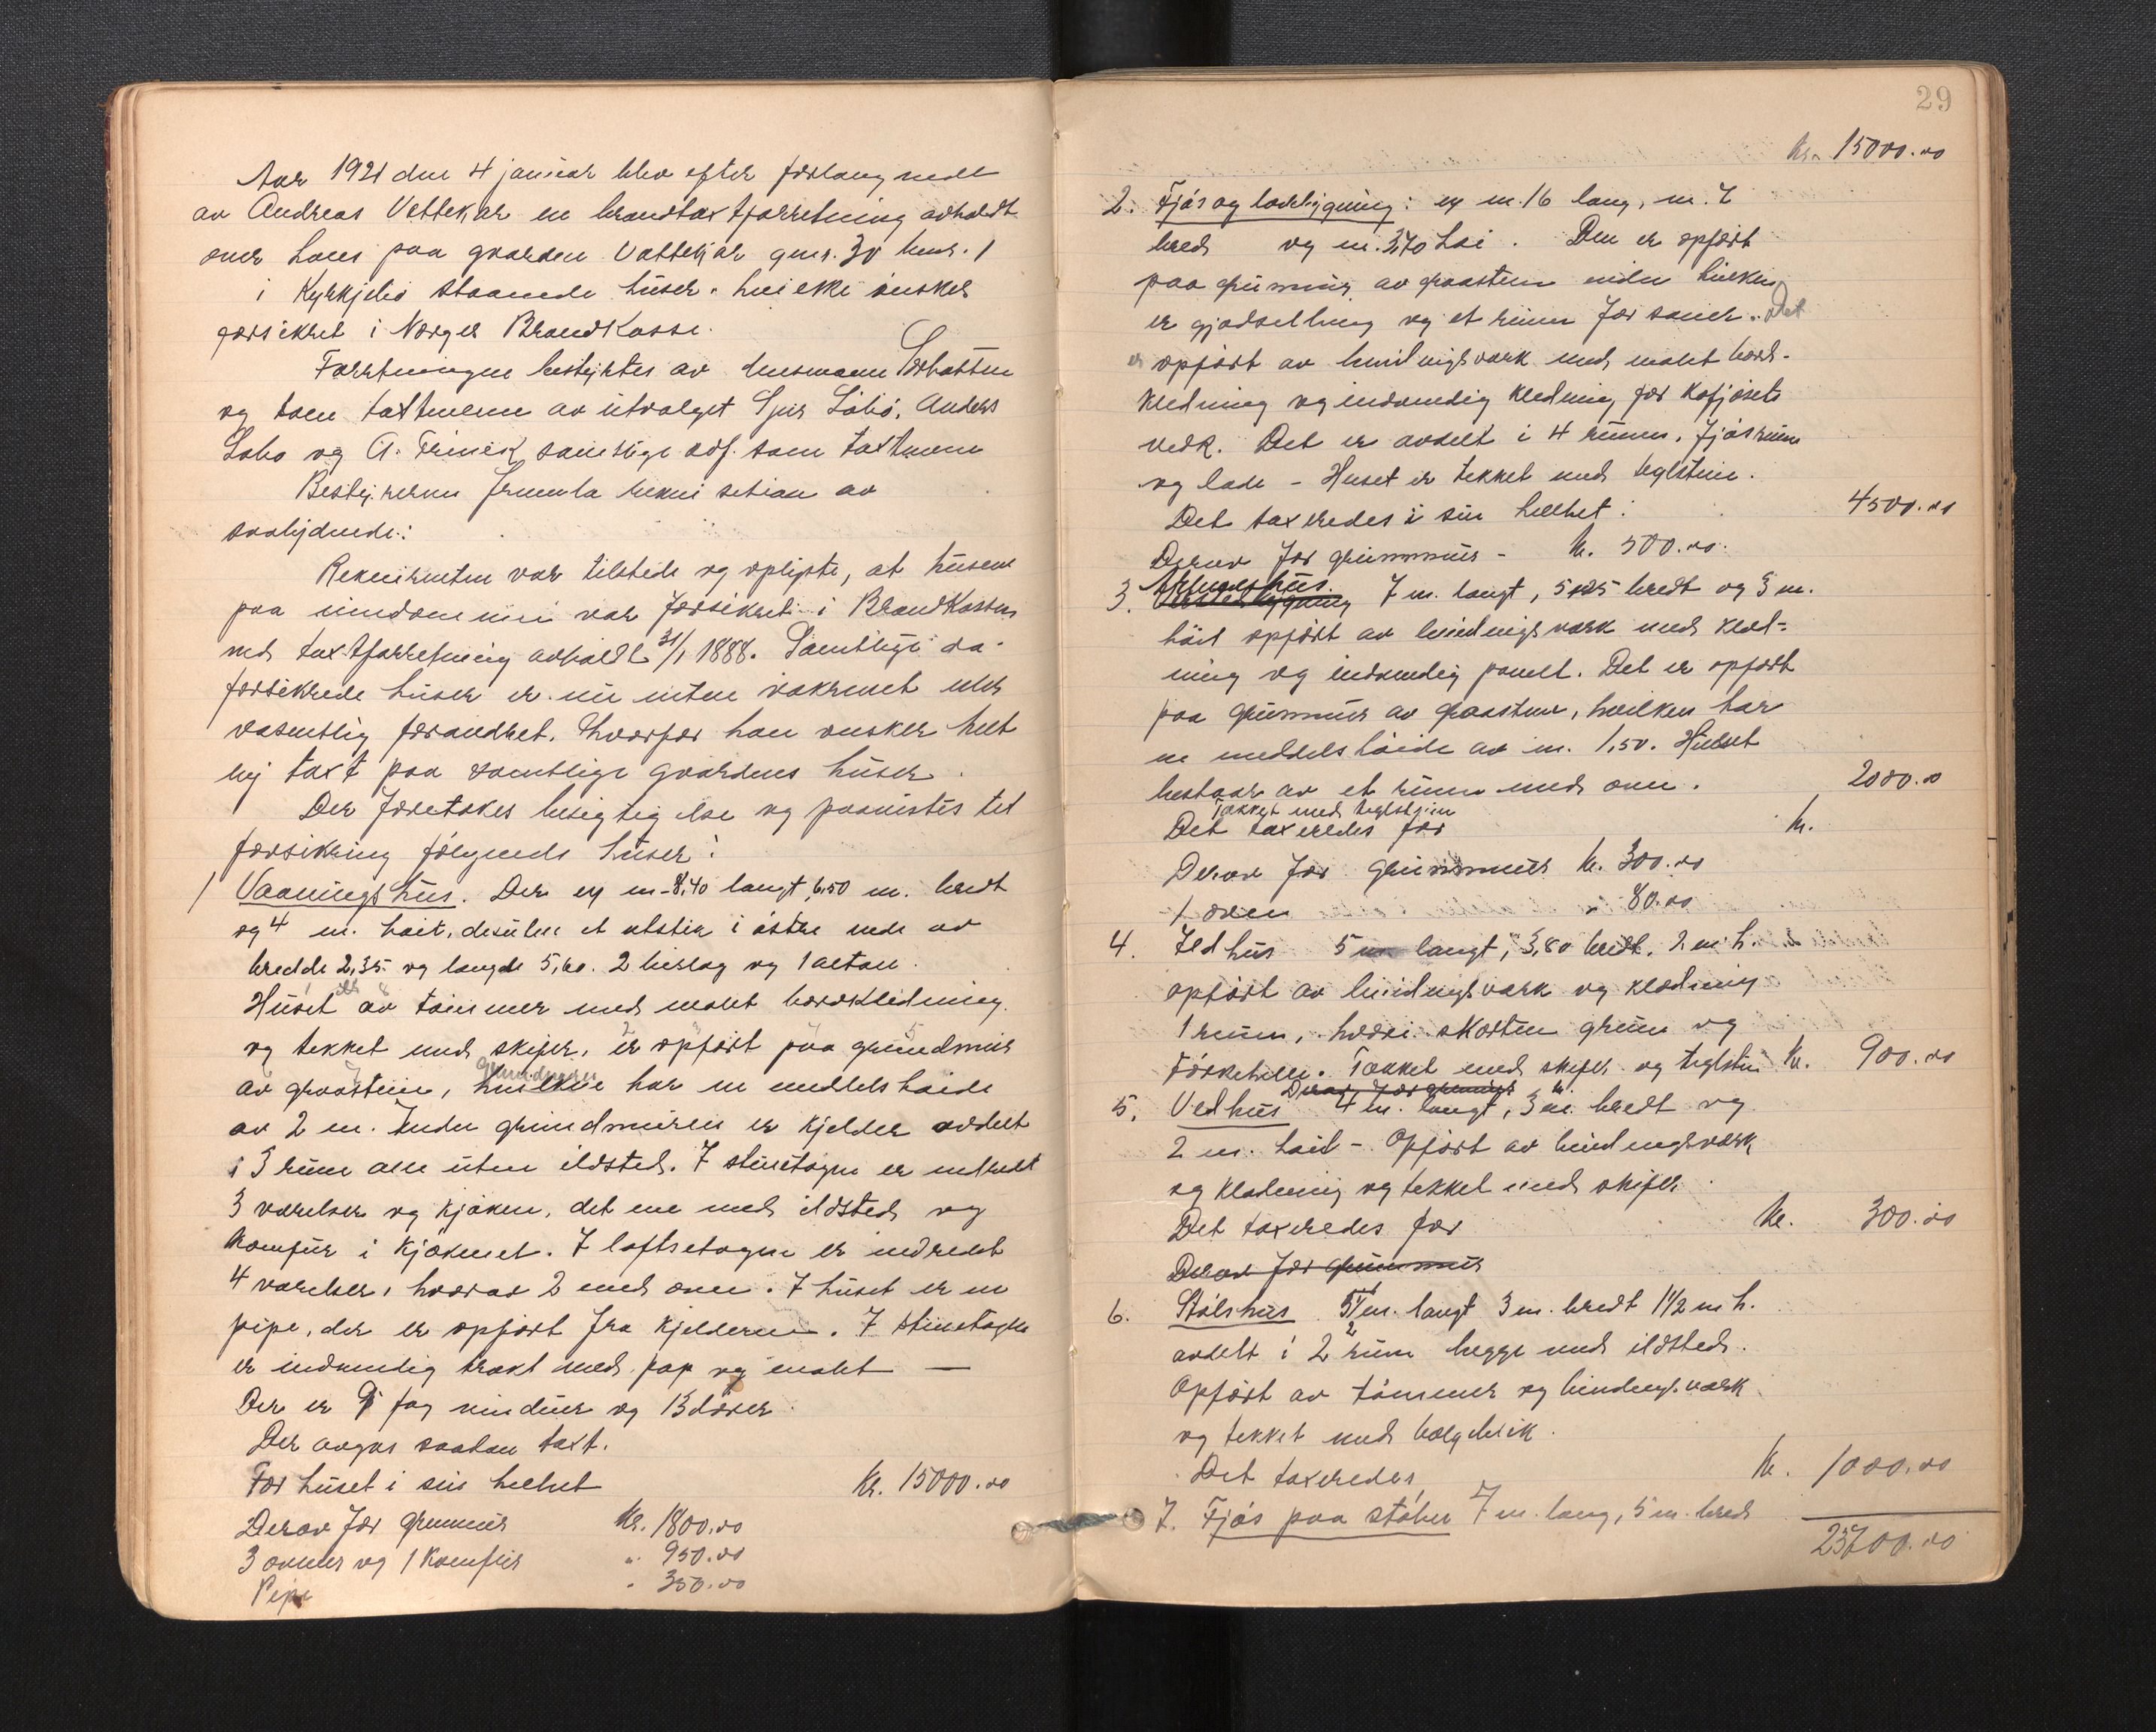 Aar 1921 den 4 januar blev efter forlangende
av Andreas Vettekar en brandtaxtforretning avholdt
over hans paa gaarden Vettekjar gnr. 30 bnr. 1
i Kyrkjebø staaende huser. hvilke ønskes
forsikret i Norges Brandkasse.
Forretningen bestyrtes av lensmann Sørbotten
og som taxtmenn av utvalget Sjur Søbø, Anders
Søbø og A. samtlige som taxtmenn
Bestyreren fremla rekvisition av
saalydende:
Rekvirenten var tilstede og oplyste, at husene
paa eiendommen var forsikret i Brandkassen
ved taxtforretning avholdt 31/1 1888. Samtlige da
forsikrede huser er nu enten eller
væsentlig forandret. hvorfor han ønsker helt
ny taxt paa samtlige gaardens huser.
Der foretokes besigtigelse og paavistes til
forsikring følgende huser:
1 Vaaningshus. Der er m. 8,40 langt, 6,50 m. bredt
og 4 m. høit, desuten et utstik i østre ende av
bredde 2,35 og længde 5,60. 2 bislag og 1 altan.
Huset er av tømmer med malt bordklædning
og tekket med skifer, er opført paa grundmur
av graasten, Grundmuren hvilken har en middels høide
av 2 m. Inden grundmuren er kjelder avdelt
i 3 rum alle uten ildsted. I stueetagen er indredt
3 værelser og kjøken, det ene med ildsted og
komfur i kjøkenet. I loftsetagen er indredt
4 værelser, hvorav 2 med ovn. I huset er en
pipe, der er opført fra kjelderen. I stueetagen
er indvendig trækt med pap og malt —
Der er 9 fag vinduer og 13 dører.
Der avgas saadan taxt.
For huset i sin helhet Kr. 15000.00
Derav for grunmur Kr. 1800.00
3 ovner og 1 Komfur " 950.00
Pipe " 350.00
29
Kr. 15000.00
2. Fjøs og ladebygning: er m. 16 lang, m. 7
bred og m. 3,70 høi. Den er opført
paa grunmur av graasten inden hvilken
er gjødselbing og et rum for sauer. Det
er opført av bindingsværk med malt bord-
kledning og indvendig kledning for kofjøsets
vedk. Det er avdelt i 4 rumm, fjøsrum
og lade - Huset er tekket med teglsten.
Det taxeredes i sin helhet: 4500.00
Derav for grunnmur - kr. 500.00
3. Arbeidshus 7 m. langt, 5 m 25 bredt og 3 m.
høit opført av bindingsværk med klæd-
ning og indvendig panelt. Det er opført
paa grunmur av graasten, hvilken har
en middels høide av m. 1,50. Huset
bestaar av et rum med ovn. 2000.00
Tækket med teglstein
Det taxeredes for kr.
Derav for grunnmur kr. 300.00
1 ovn " 80.00
4. Ildhus 5 m langt, 3,80 bredt, 2 m h.
opført av bindingsværk og klædning
1 rum, hvori skorsten grue og
Tørkehelle. Tækket med skifer og teglsten Kr. 900.00
Derav for grunmur kr.
5. Vedhus 4 m. langt, 3 m. bredt og
2 m. høit - Opført av bindingsværk
og klædning og tekket med skifer.
Det taxeredes for kr. 300.00
Derav for grunnmur
6. Stølshus 5 m. langt 3 m. bredt 1 1/2 m h.
avdelt i 2 rum begge med ildsted.
Opført av tømmer og bindingsværk
og tekket med bølgeblik.
Det taxeredes Kr. 1000.00
7. Fjøs paa stølen 7 m. lang, 5 m. bred
23700.00